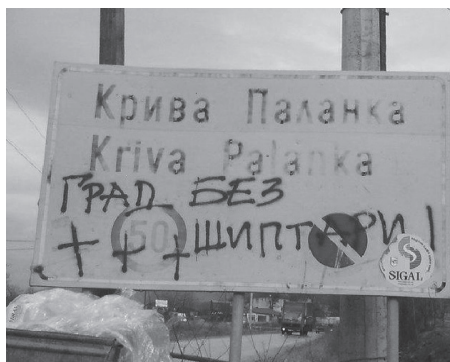 Крива Паланка
Kriva Palanka
ГРАД БЕЗ
50 ШИПТАРИ!
SIGAL